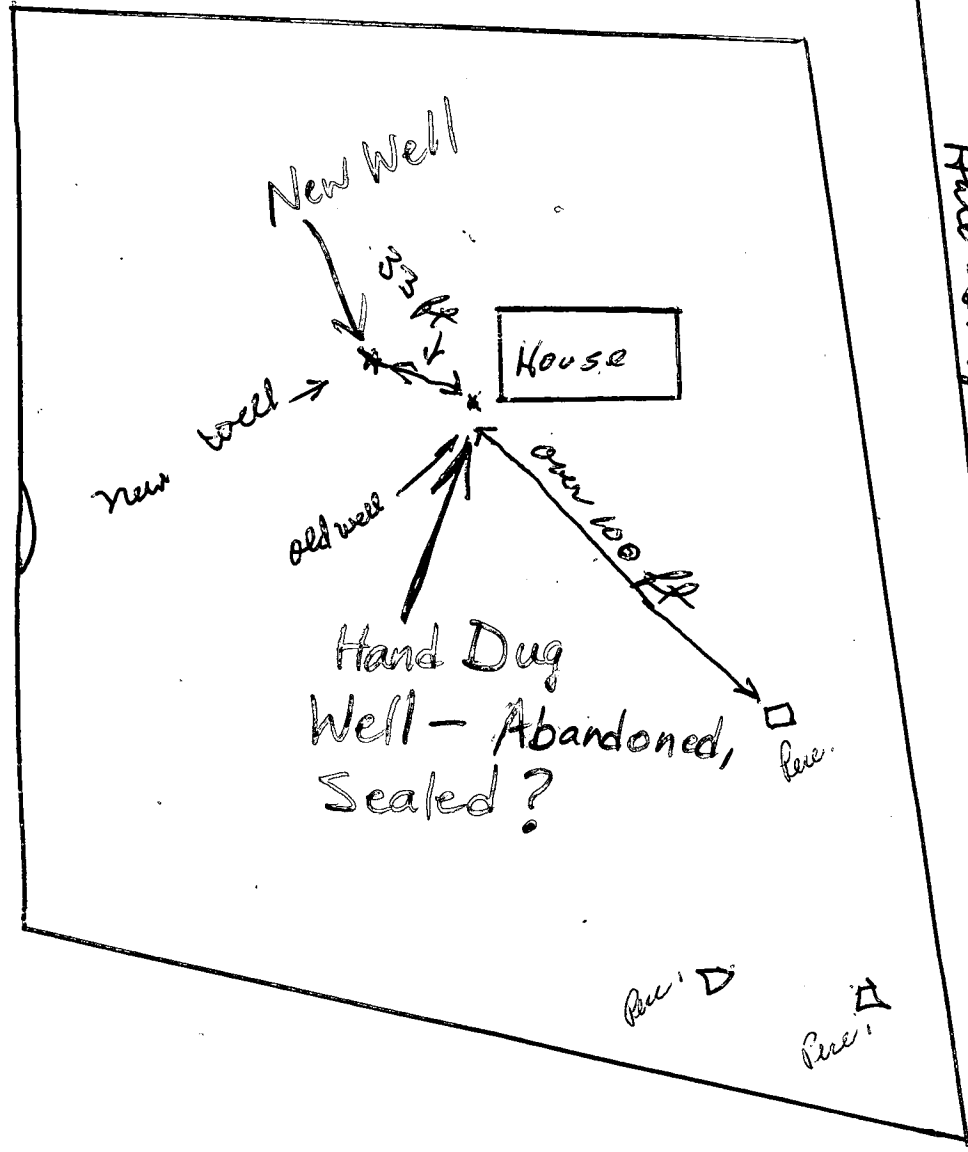 New Well
33 ft
House
new well
old well
over 100 ft
Hand Dug
Well — Abandoned,
Sealed ?
Perc.
Perc.
Perc.